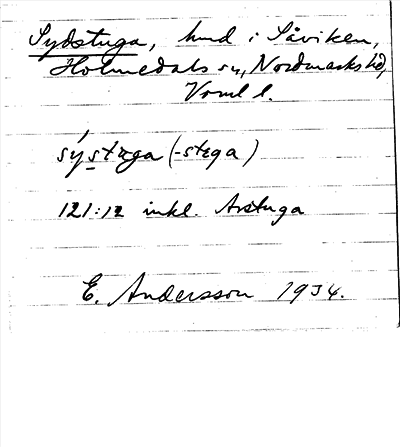 Sydstuga, hmd i Såviken,
Holmedals sn, Nordmarks hd,
Vrml l.
sýstæga (-stega)
121:12 inkl. Arstuga
E. Andersson 1934.